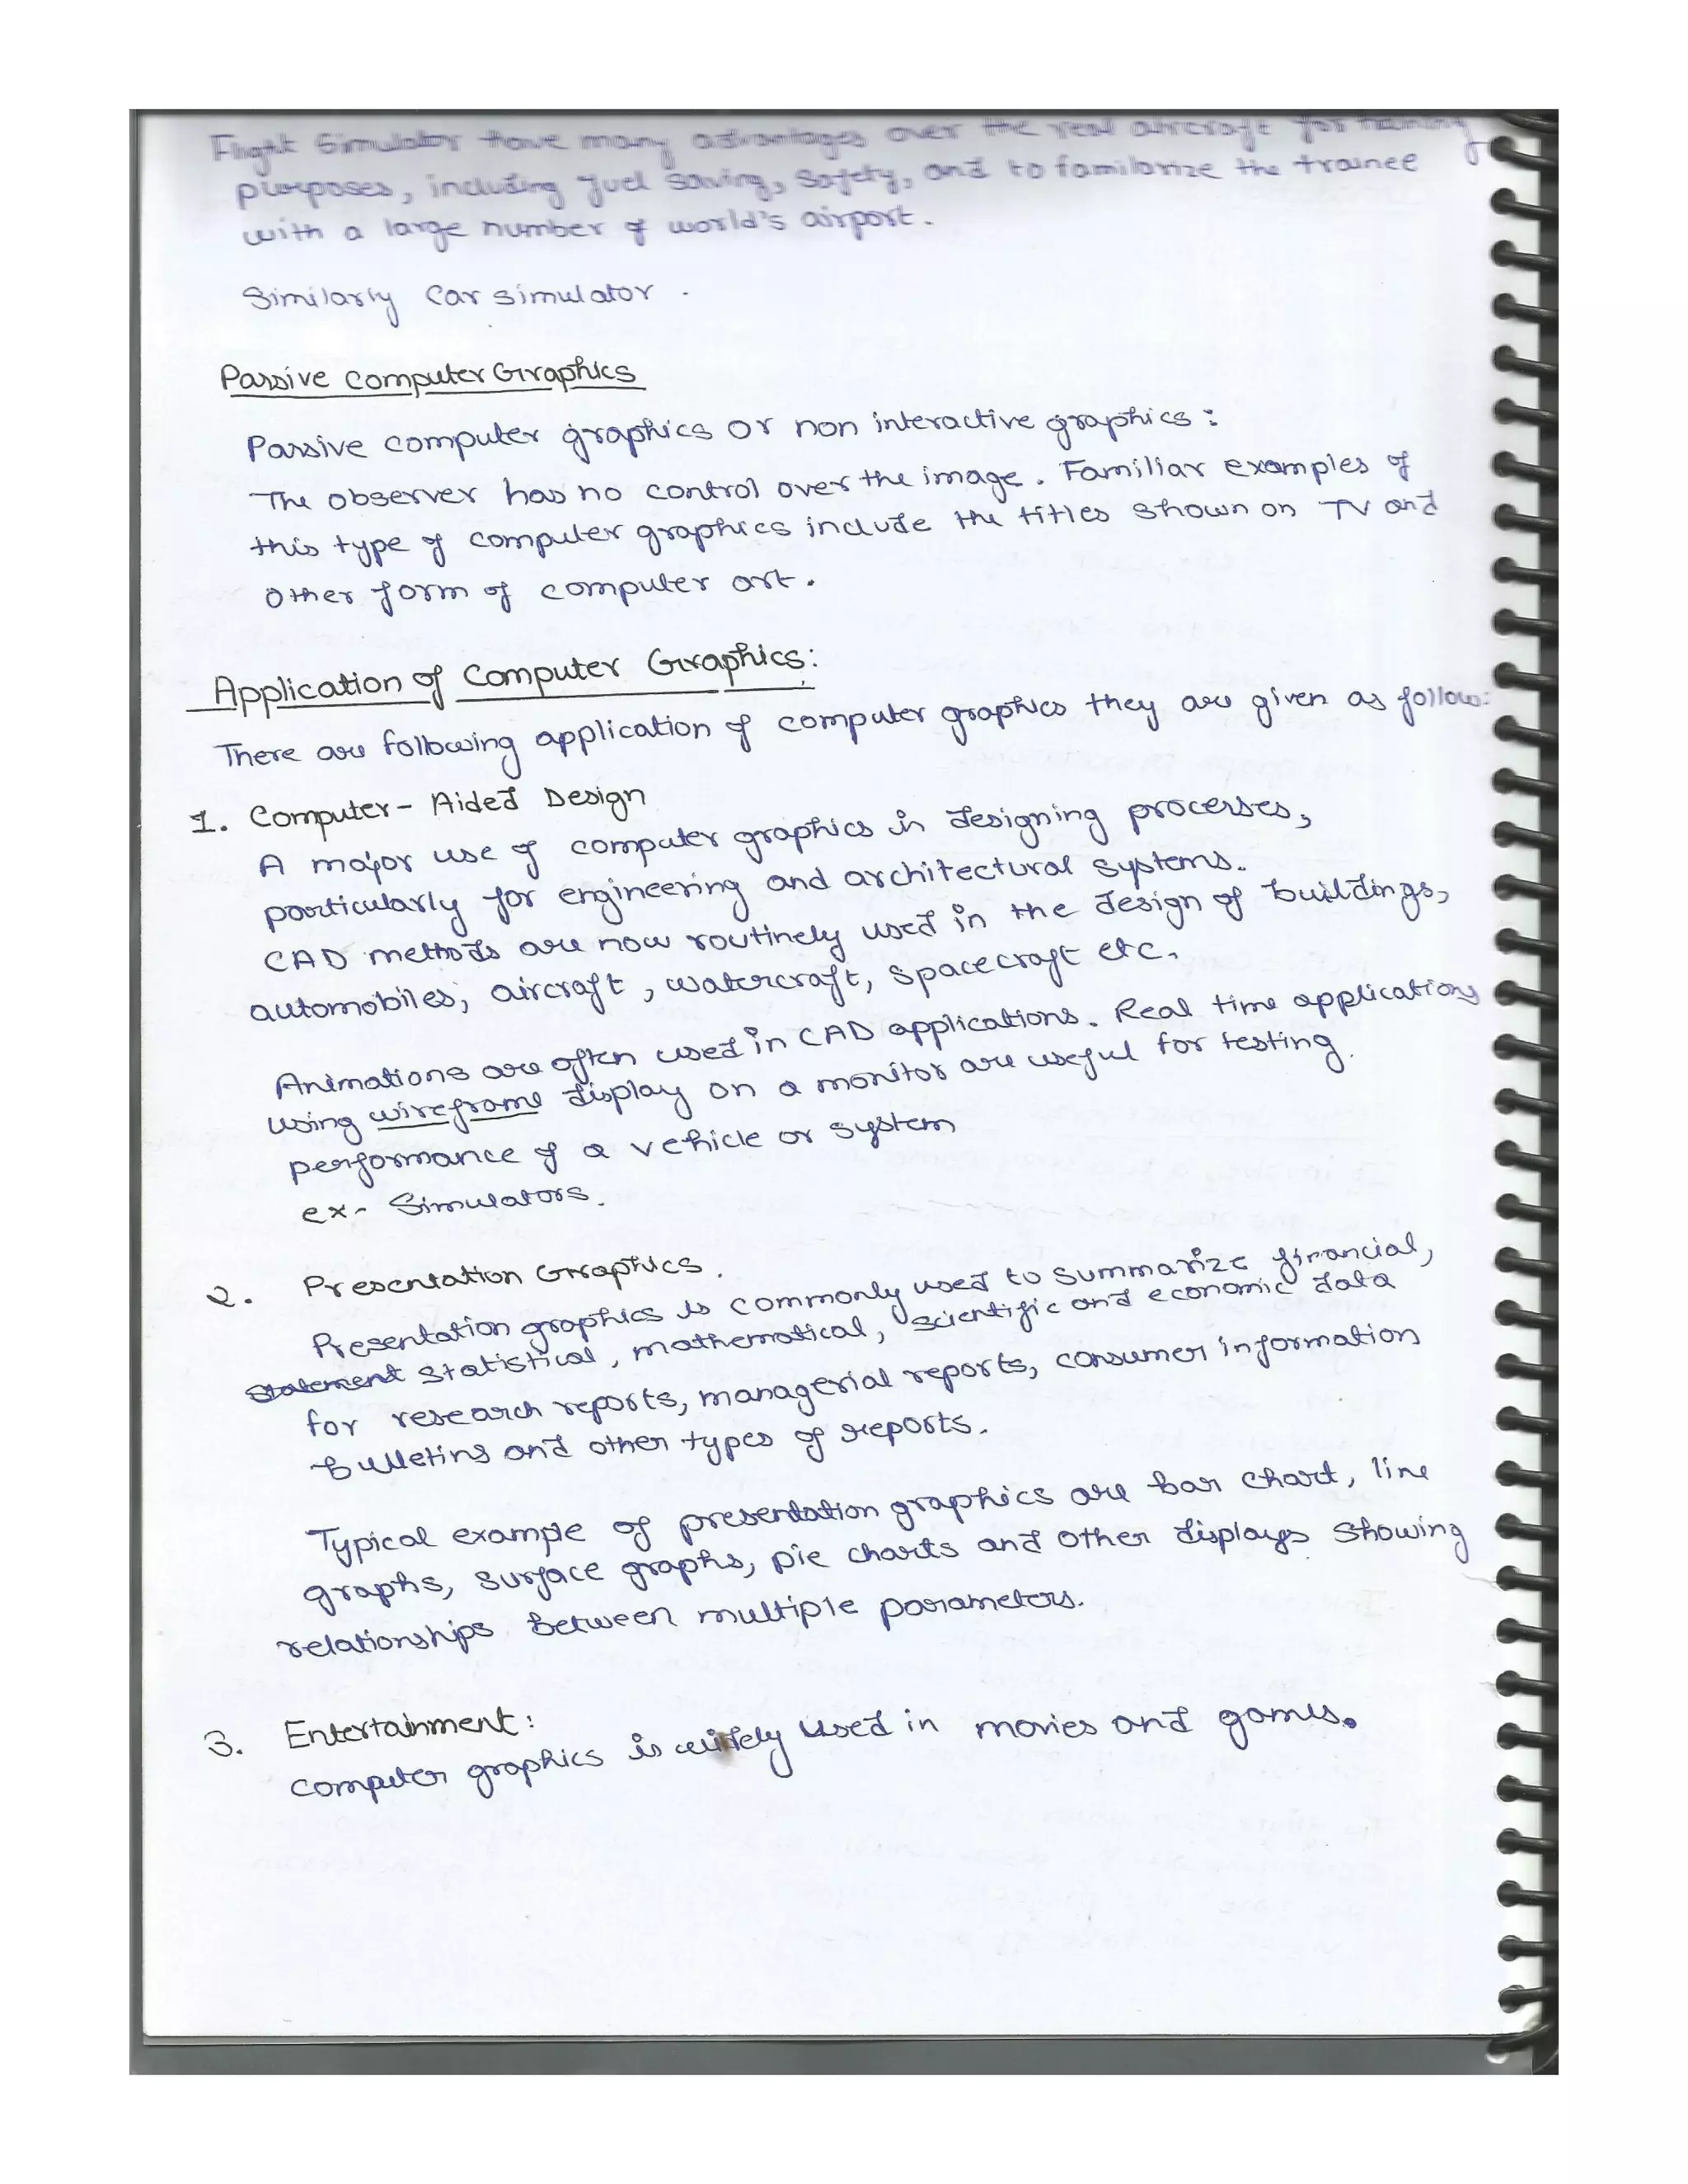 Flight Simulator have many advantages over the real aircraft for training
purposes, including fuel saving, safety, and to familarize the trainee
with a large number of world's airport.
Similarly Car simulator.
Passive Computer Graphics
Passive computer graphics or non interactive graphics:
The observer has no control over the image. Familiar examples of
this type of computer graphics include the titles shown on TV and
Other form of computer art.
Application of Computer Graphics:
There are following application of computer graphics they are given as follow:
1. Computer-Aided Design
A major use of computer graphics in designing processes,
particularly for engineering and architectural systems.
CAD methods are now routinely used in the design of buildings,
automobiles, aircraft, watercraft, spacecraft etc.
Animations are often used in CAD applications. Real time applications
using wireframe display on a monitor are useful for testing.
performance of a vehicle or system
ex- Simulators.
2. Presentation Graphics.
Presentation graphics is commonly used to summarize financial,
statement statistical, mathematical, scientific and economic data
for research reports, managerial reports, consumer information
bulletins and other types of reports.
Typical example of presentation graphics are bar chart, line
graphs, surface graphs, pie charts and other displays showing
relationships between multiple parameters.
3. Entertainment:
Computer graphics is widely used in movies and games.